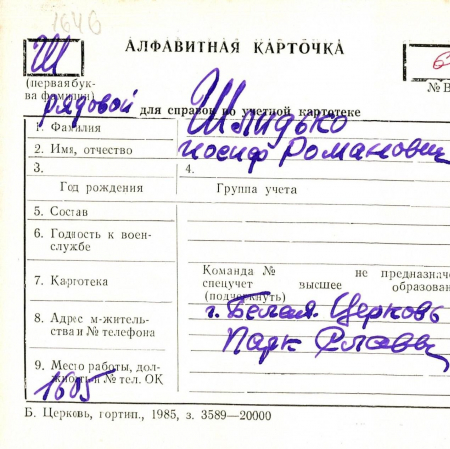 1646
Ш
АЛФАВИТНАЯ КАРТОЧКА
(первая бук-
ва фамилии)
№ В
рядовой для справок по учетной картотеке
1. Фамилия Шлидько
2. Имя, отчество Иосиф Романович
3. 4.
Год рождения Группа учета
5. Состав
6. Годность к воен-
службе
7. Картотека
Команда № не предназначе
спецучет высшее образован
(подчеркнуть)
8. Адрес м-житель-
ства и № телефона
г. Белая Церковь
Парк Славы
9. Место работы, дол-
жность и № тел. ОК
1605
Б. Церковь, гортип., 1985, з. 3589—20000